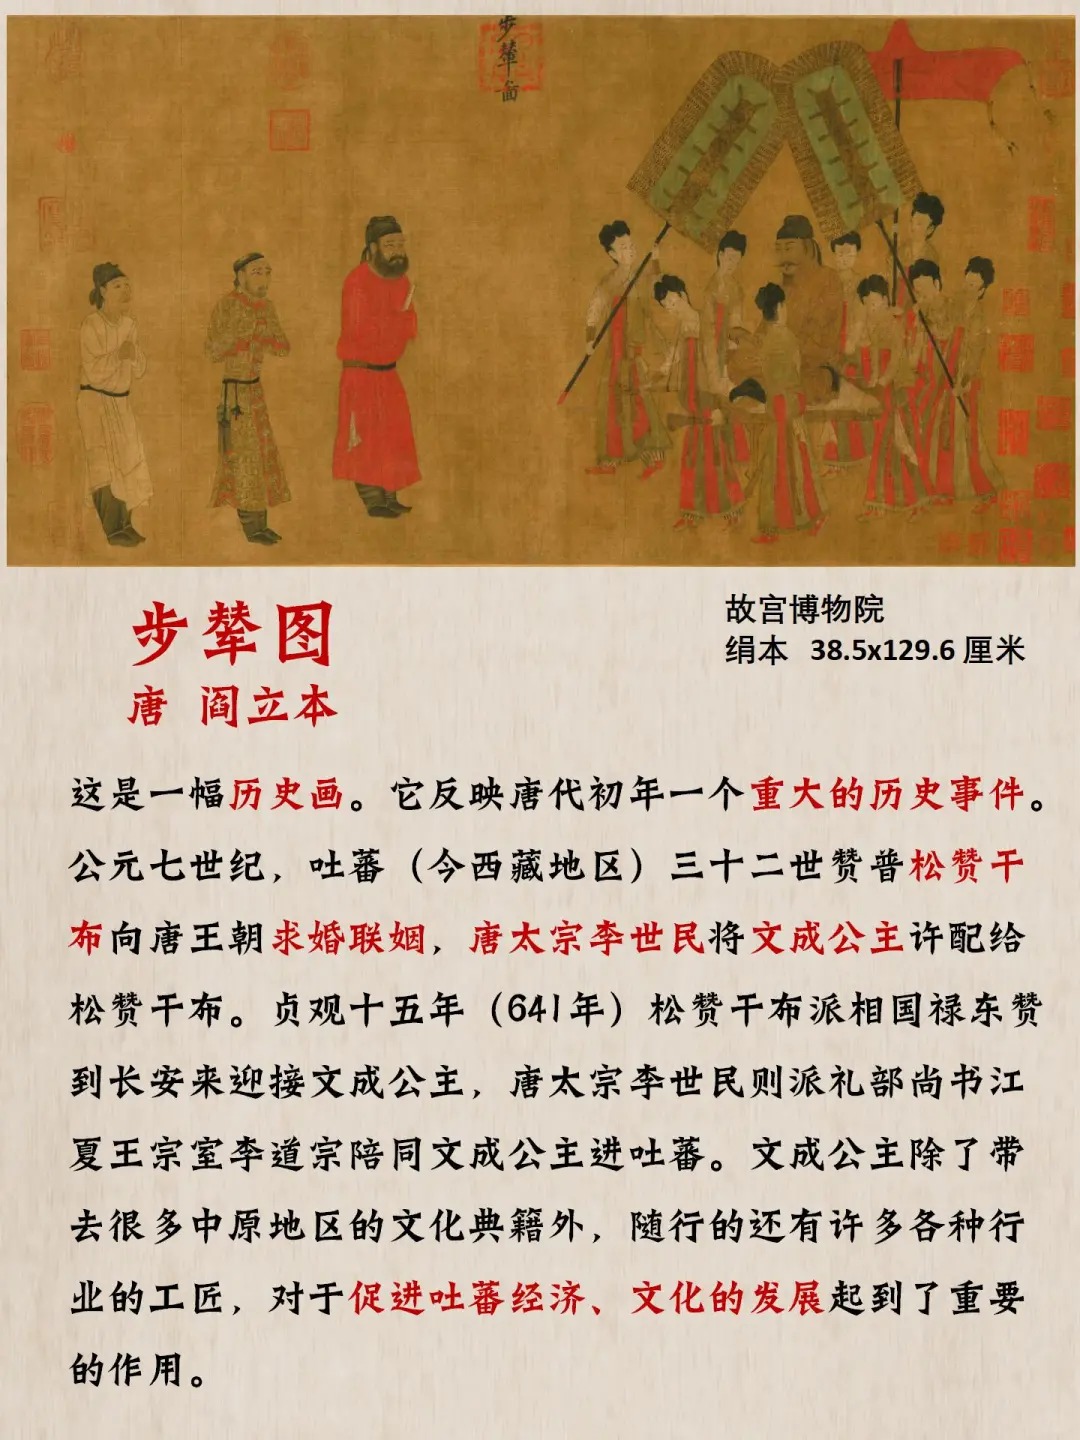 步辇图
步辇图
唐 阎立本
故宫博物院
绢本 38.5x129.6 厘米
这是一幅历史画。它反映唐代初年一个重大的历史事件。
公元七世纪，吐蕃（今西藏地区）三十二世赞普松赞干
布向唐王朝求婚联姻，唐太宗李世民将文成公主许配给
松赞干布。贞观十五年（641年）松赞干布派相国禄东赞
到长安来迎接文成公主，唐太宗李世民则派礼部尚书江
夏王宗室李道宗陪同文成公主进吐蕃。文成公主除了带
去很多中原地区的文化典籍外，随行的还有许多各种行
业的工匠，对于促进吐蕃经济、文化的发展起到了重要
的作用。